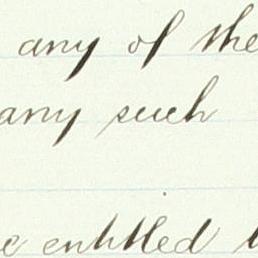 any of the
any such
entitled